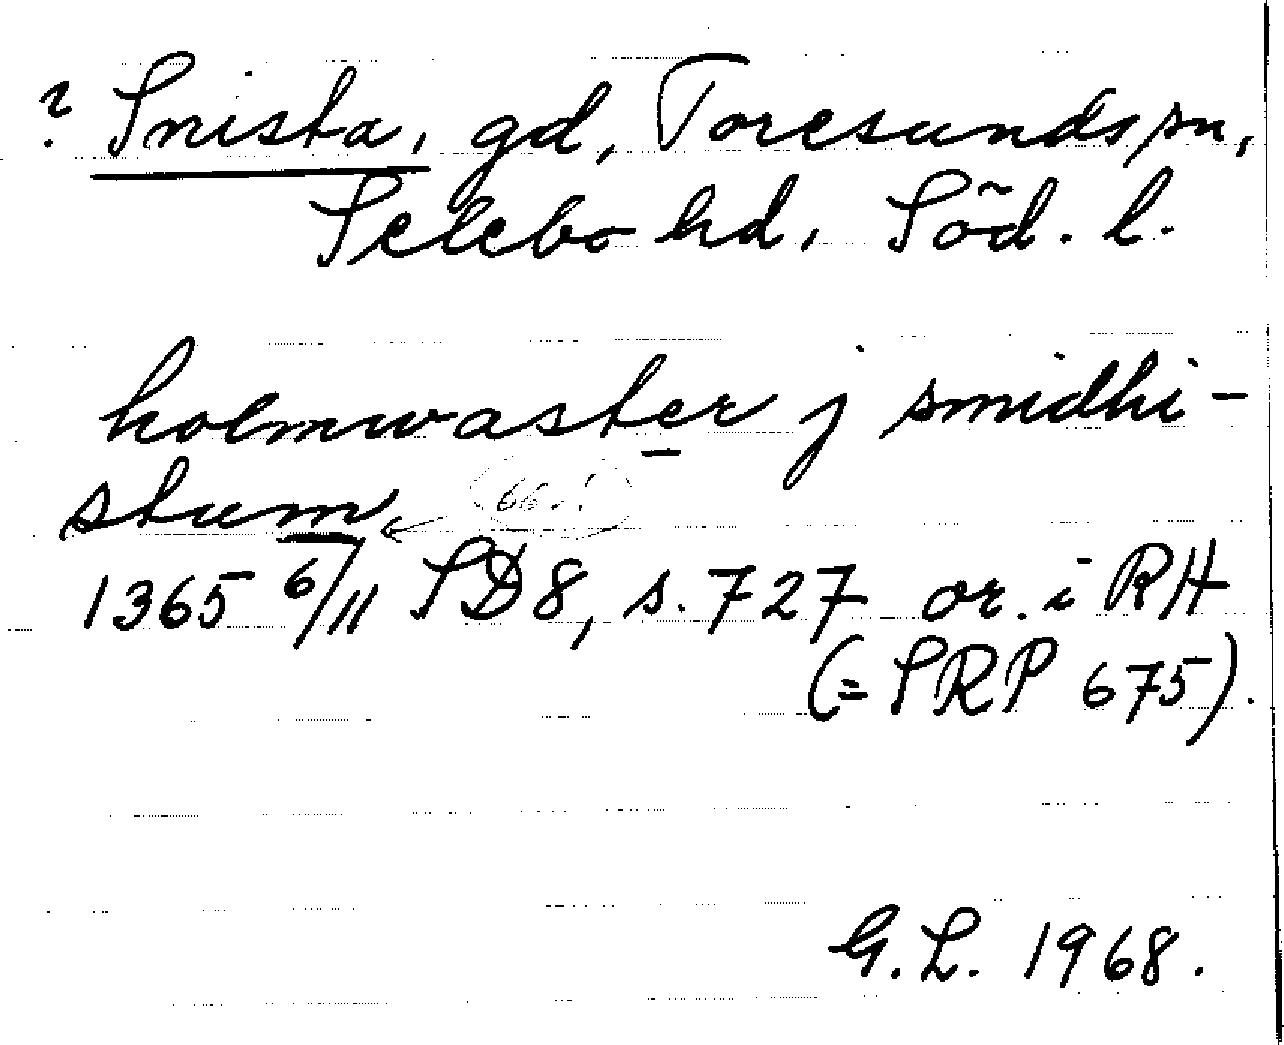 ? Snista, gd, Toresunds sn,
Selebo hd, Söd. l.
holmwaster j smidhi-
stum
1365 6/11 SD8, s. 727 or. i RH
(= SRP 675).
G. L. 1968.